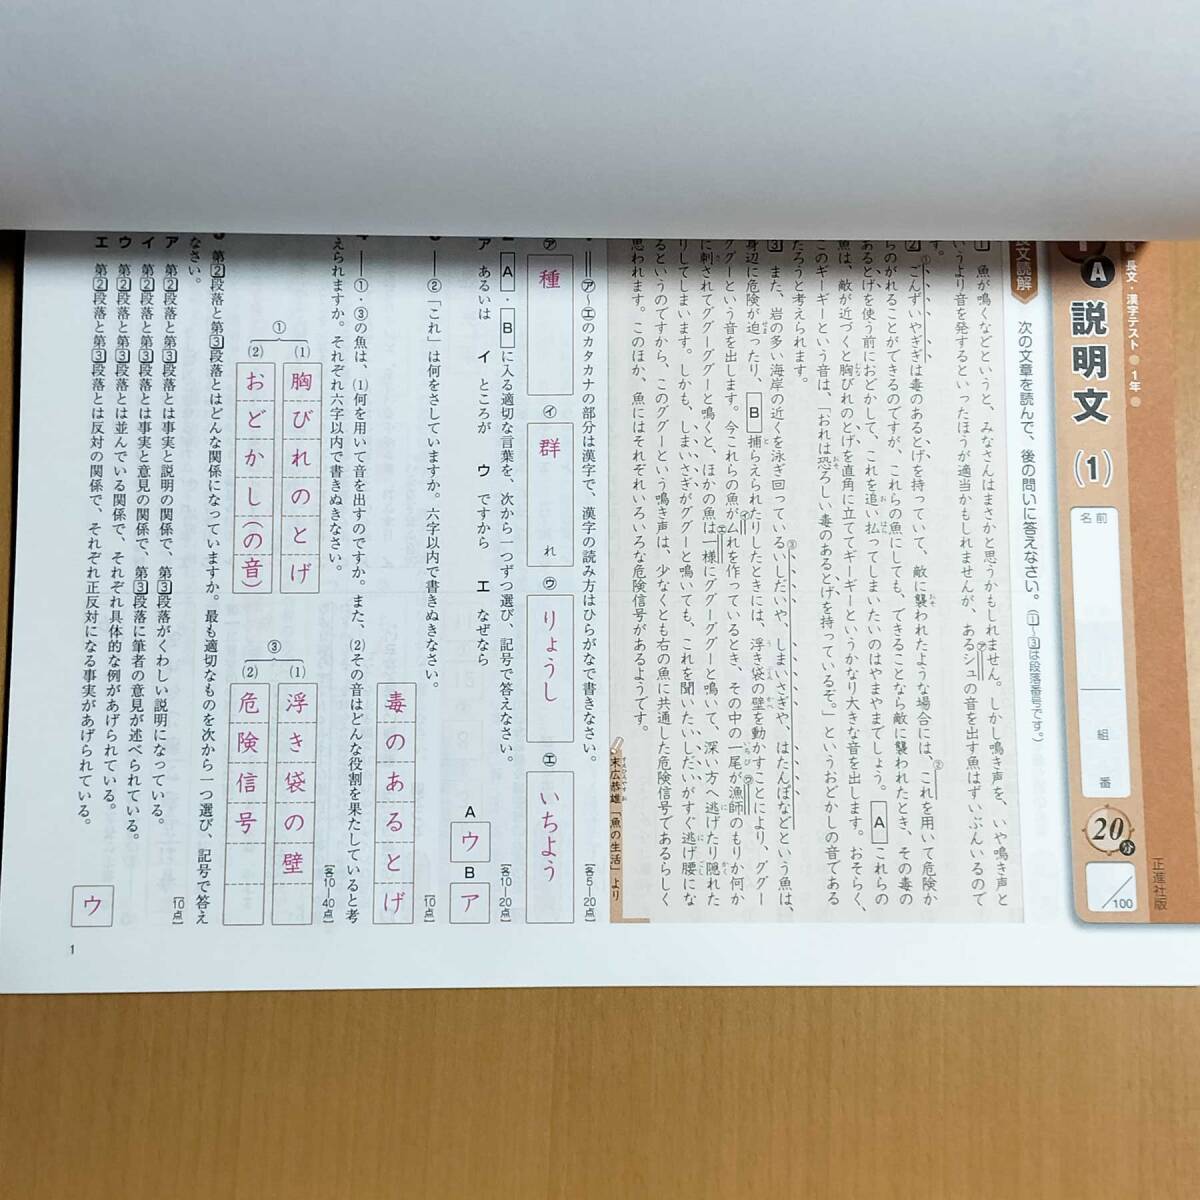 長文・漢字テスト●1年●
A 説明文(1)
名前
組
番
20分
/100
正進社版
長文読解
次の文章を読んで、後の問いに答えなさい。(1~3は段落番号です。)
1 魚が鳴くなどというと、みなさんはまさかと思うかもしれません。しかし鳴き声を、いや鳴き声と
いうより音を発するといったほうが適当かもしれませんが、あるシュの音を出す魚はずいぶんいるので
す。
2 ごんずいやぎぎは毒のあるとげを持っていて、敵に襲われたような場合には、これを用いて危険か
らのがれることができるのですが、これらの魚にしても、できることなら敵に襲われたとき、その毒の
あるとげを使う前におどかして、これを追い払ってしまいたいのはやまやまでしょう。A これらの
魚は、敵が近づくと胸びれのとげを直角に立ててギーギーというかなり大きな音を出します。おそらく、
このギーギーという音は、「おれは恐ろしい毒のあるとげを持っているぞ。」というおどかしの音である
だろうと考えられます。
3 また、岩の多い海岸の近くを泳ぎ回っているいしだいや、しまいさぎや、はたんぽなどという魚は、
身辺に危険が迫ったり、B 捕らえられたりしたときには、浮き袋の壁を動かすことにより、ググー
ググーという音を出します。今これらの魚がムれを作っているとき、その中の一尾が漁師のもりか何か
に刺されてググーググーと鳴くと、ほかの魚は一様にググーググーと鳴いて、深い方へ逃げたり隠れた
りしてしまいます。しかも、しまいさぎがググーと鳴いても、これを聞いたいしだいがすぐ逃げ腰にな
るというのですから、このググーという鳴き声は、少なくとも右の魚に共通した危険信号であるらしく
思われます。このほか、魚にはそれぞれいろいろな危険信号があるようです。
末広恭雄「魚の生活」より
㋐~㋓のカタカナの部分は漢字で、漢字の読み方はひらがなで書きなさい。
[各5―20点]
㋐ 種
㋑ 群れ
㋒ りょうし
㋓ いちよう
A・Bに入る適切な言葉を、次から一つずつ選び、記号で答えなさい。
[各10―20点]
ア あるいは イ ところが ウ ですから エ なぜなら
A ウ
B ア
――②「これ」は何をさしていますか。六字以内で書きぬきなさい。
[10点]
毒のあるとげ
――①・③の魚は、(1)何を用いて音を出すのですか。また、(2)その音はどんな役割を果たしていると考
えられますか。それぞれ六字以内で書きぬきなさい。
[各10―40点]
① (1) 胸びれのとげ
(2) おどかし(の音)
③ (1) 浮き袋の壁
(2) 危険信号
第2段落と第3段落とはどんな関係になっていますか。最も適切なものを次から一つ選び、記号で答え
なさい。
[10点]
ア 第2段落と第3段落とは事実と説明の関係で、第3段落がくわしい説明になっている。
イ 第2段落と第3段落とは事実と意見の関係で、第3段落に筆者の意見が述べられている。
ウ 第2段落と第3段落とは並んでいる関係で、それぞれ具体的な例があげられている。
エ 第2段落と第3段落とは反対の関係で、それぞれ正反対になる事実があげられている。
ウ
1